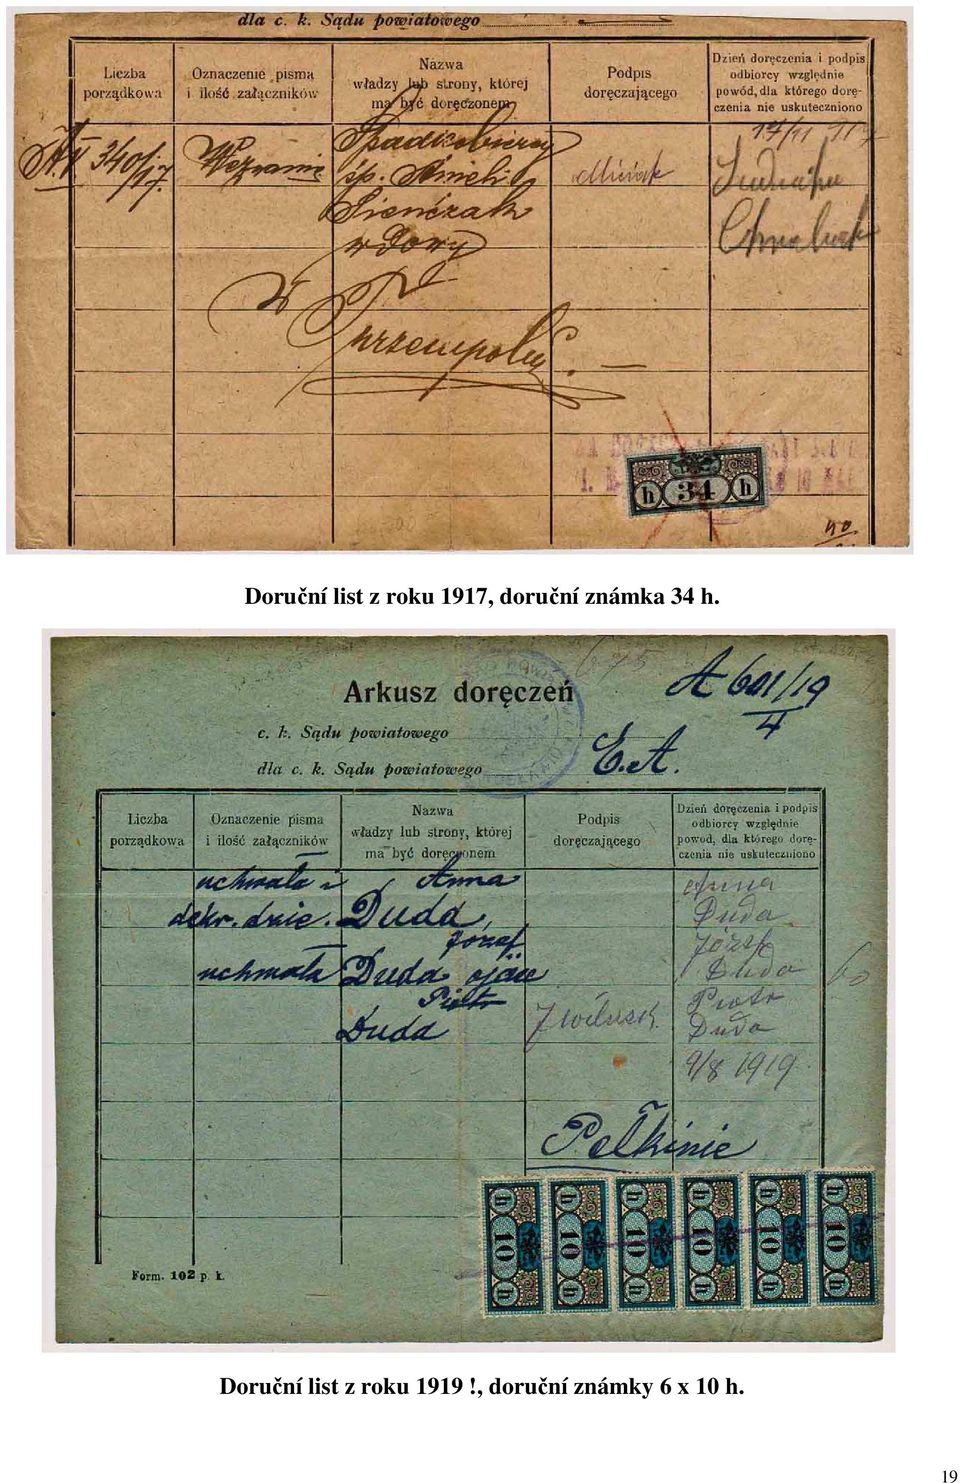 dla c. k. Sądu powiatowego
Liczba
porządkowa
Oznaczenie pisma
i ilość załączników
Nazwa
władzy lub strony, której
ma być doręczonem
Podpis
doręczającego
Dzień doręczenia i podpis
odbiorcy względnie
powód, dla którego dorę-
czenia nie uskuteczniono
340/17.
Wezwanie
Spadkobiercy
śp. Anieli
Sienczak
wdowy
w
h 34 h
40
Doruční list z roku 1917, doruční známka 34 h.
675
Arkusz doręczeń
A 601/19
4
c. k. Sądu powiatowego
dla c. k. Sądu powiatowego
E.A.
Liczba
porządkowa
Oznaczenie pisma
i ilość załączników
Nazwa
władzy lub strony, której
ma być doręczonem
Podpis
doręczającego
Dzień doręczenia i podpis
odbiorcy względnie
powod, dla którego dorę-
czenia nie uskuteczniono
uchwała i
dekr. dzie.
uchwała
Anna
Duda,
Józef
Duda ojciec
Piotr
Duda
Anna
Duda
Józef
Duda
Piotr
Duda
9/8 1919
60
Pełkinie
h 10 h
h 10 h
h 10 h
h 10 h
h 10 h
h 10 h
Form. 102 p. k.
Doruční list z roku 1919 !, doruční známky 6 x 10 h.
19